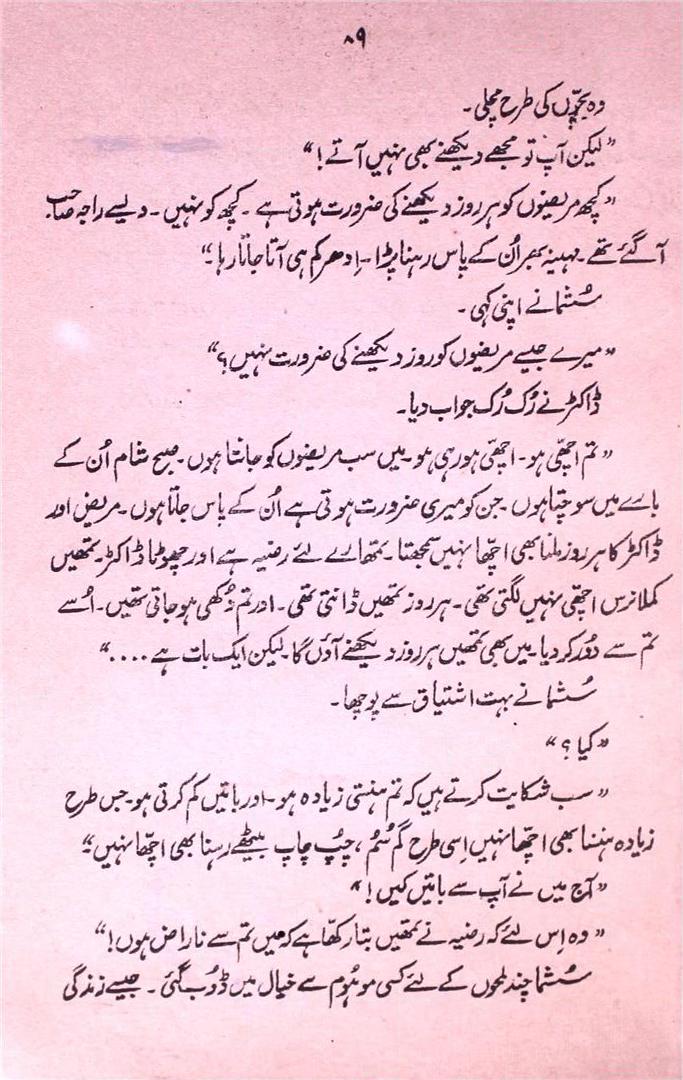 ۸۹
وہ بچّوں کی طرح مچلی۔
”لیکن آپ تو مجھے دیکھنے بھی نہیں آتے!“
”کچھ مریضوں کو ہر روز دیکھنے کی ضرورت ہوتی ہے۔ کچھ کو نہیں۔ ویسے راجہ صاحب
آ گئے تھے۔ مہینہ بھر اُن کے پاس رہنا پڑا۔ اِدھر کم ہی آتا جاتا رہا۔“
سُشما نے اپنی کہی۔
”میرے جیسے مریضوں کو روز دیکھنے کی ضرورت نہیں؟“
ڈاکٹر نے رُک رُک جواب دیا۔
”تم اچھّی ہو۔ اچھّی ہو رہی ہو۔ میں سب مریضوں کو جانتا ہوں۔ صبح شام اُن کے
بارے میں سوچتا ہوں۔ جن کو میری ضرورت ہوتی ہے اُن کے پاس جاتا ہوں۔ مریض اور
ڈاکٹر کا ہر روز ملنا بھی اچھّا نہیں سمجھتا۔ تمھارے لئے رضیہ ہے اور چھوٹا ڈاکٹر۔ تمھیں
کملا نرس اچھّی نہیں لگتی تھی۔ ہر روز تمھیں ڈانٹتی تھی۔ اور تم دُکھی ہو جاتی تھیں۔ اُسے
تم سے دُور کر دیا۔ میں بھی تمھیں ہر روز دیکھنے آؤں گا۔ لیکن ایک بات ہے ....“
سُشما نے بہت اشتیاق سے پوچھا۔
”کیا؟“
”سب شکایت کرتے ہیں کہ تم ہنستی زیادہ ہو۔ اور باتیں کم کرتی ہو۔ جس طرح
زیادہ ہنسنا بھی اچھّا نہیں اِسی طرح گُم سُم، چُپ چاپ بیٹھے رہنا بھی اچھّا نہیں۔“
”آج میں نے آپ سے باتیں کیں!“
”وہ اِس لئے کہ رضیہ نے تمھیں بتا رکھّا ہے کہ میں تم سے ناراض ہوں!“
سُشما چند لمحوں کے لئے کسی موہُوم سے خیال میں ڈوب گئی۔ جیسے زندگی